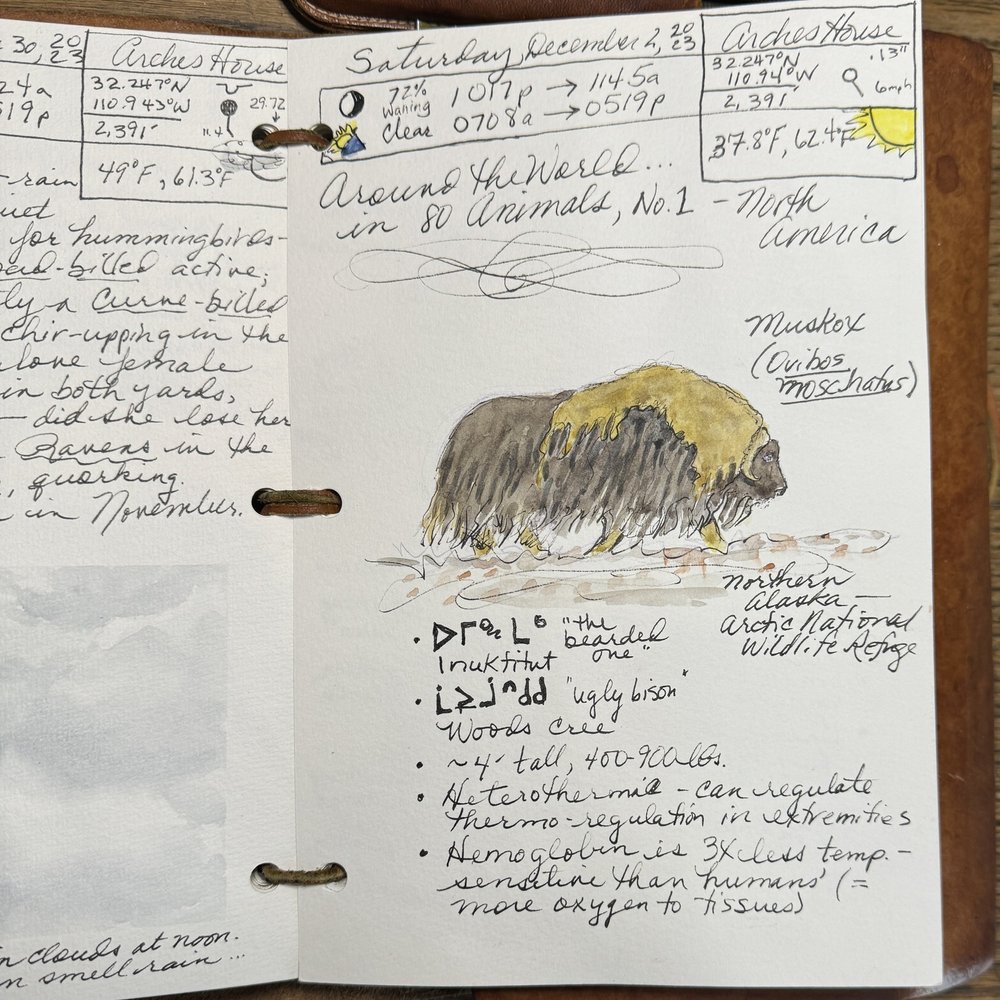 30, 2023
Arches House
24a
0519p
32.247°N
110.943°W
29.72
2,391'
11.4
49°F, 61.3°F
-rain
for hummingbirds-
-billed active;
a Curve-billed
chir-upping in the
lone female
in both yards,
— did she lose her
Ravens in the
quorking.
in November.
clouds at noon.
smell rain...
Saturday, December 2, 2023
Arches House
72%
Waning
1017p → 1145a
Clear
0708a → 0519p
32.247°N
110.94°W
.13"
6mph
2,391'
37.8°F, 62.4°F
Around the World...
in 80 Animals, No.1 - North
America
Muskox
(Ovibos
moschatus)
northern
Alaska —
Arctic National
Wildlife Refuge
• ᐅᒥᖕᒪᒃ "the
bearded
one"
Inuktitut
• "ugly bison"
Woods Cree
• ~4' tall, 400-900 lbs.
• Heterothermic - can regulate
thermo-regulation in extremities
• Hemoglobin is 3X less temp.-
sensitive than humans' (=
more oxygen to tissues)